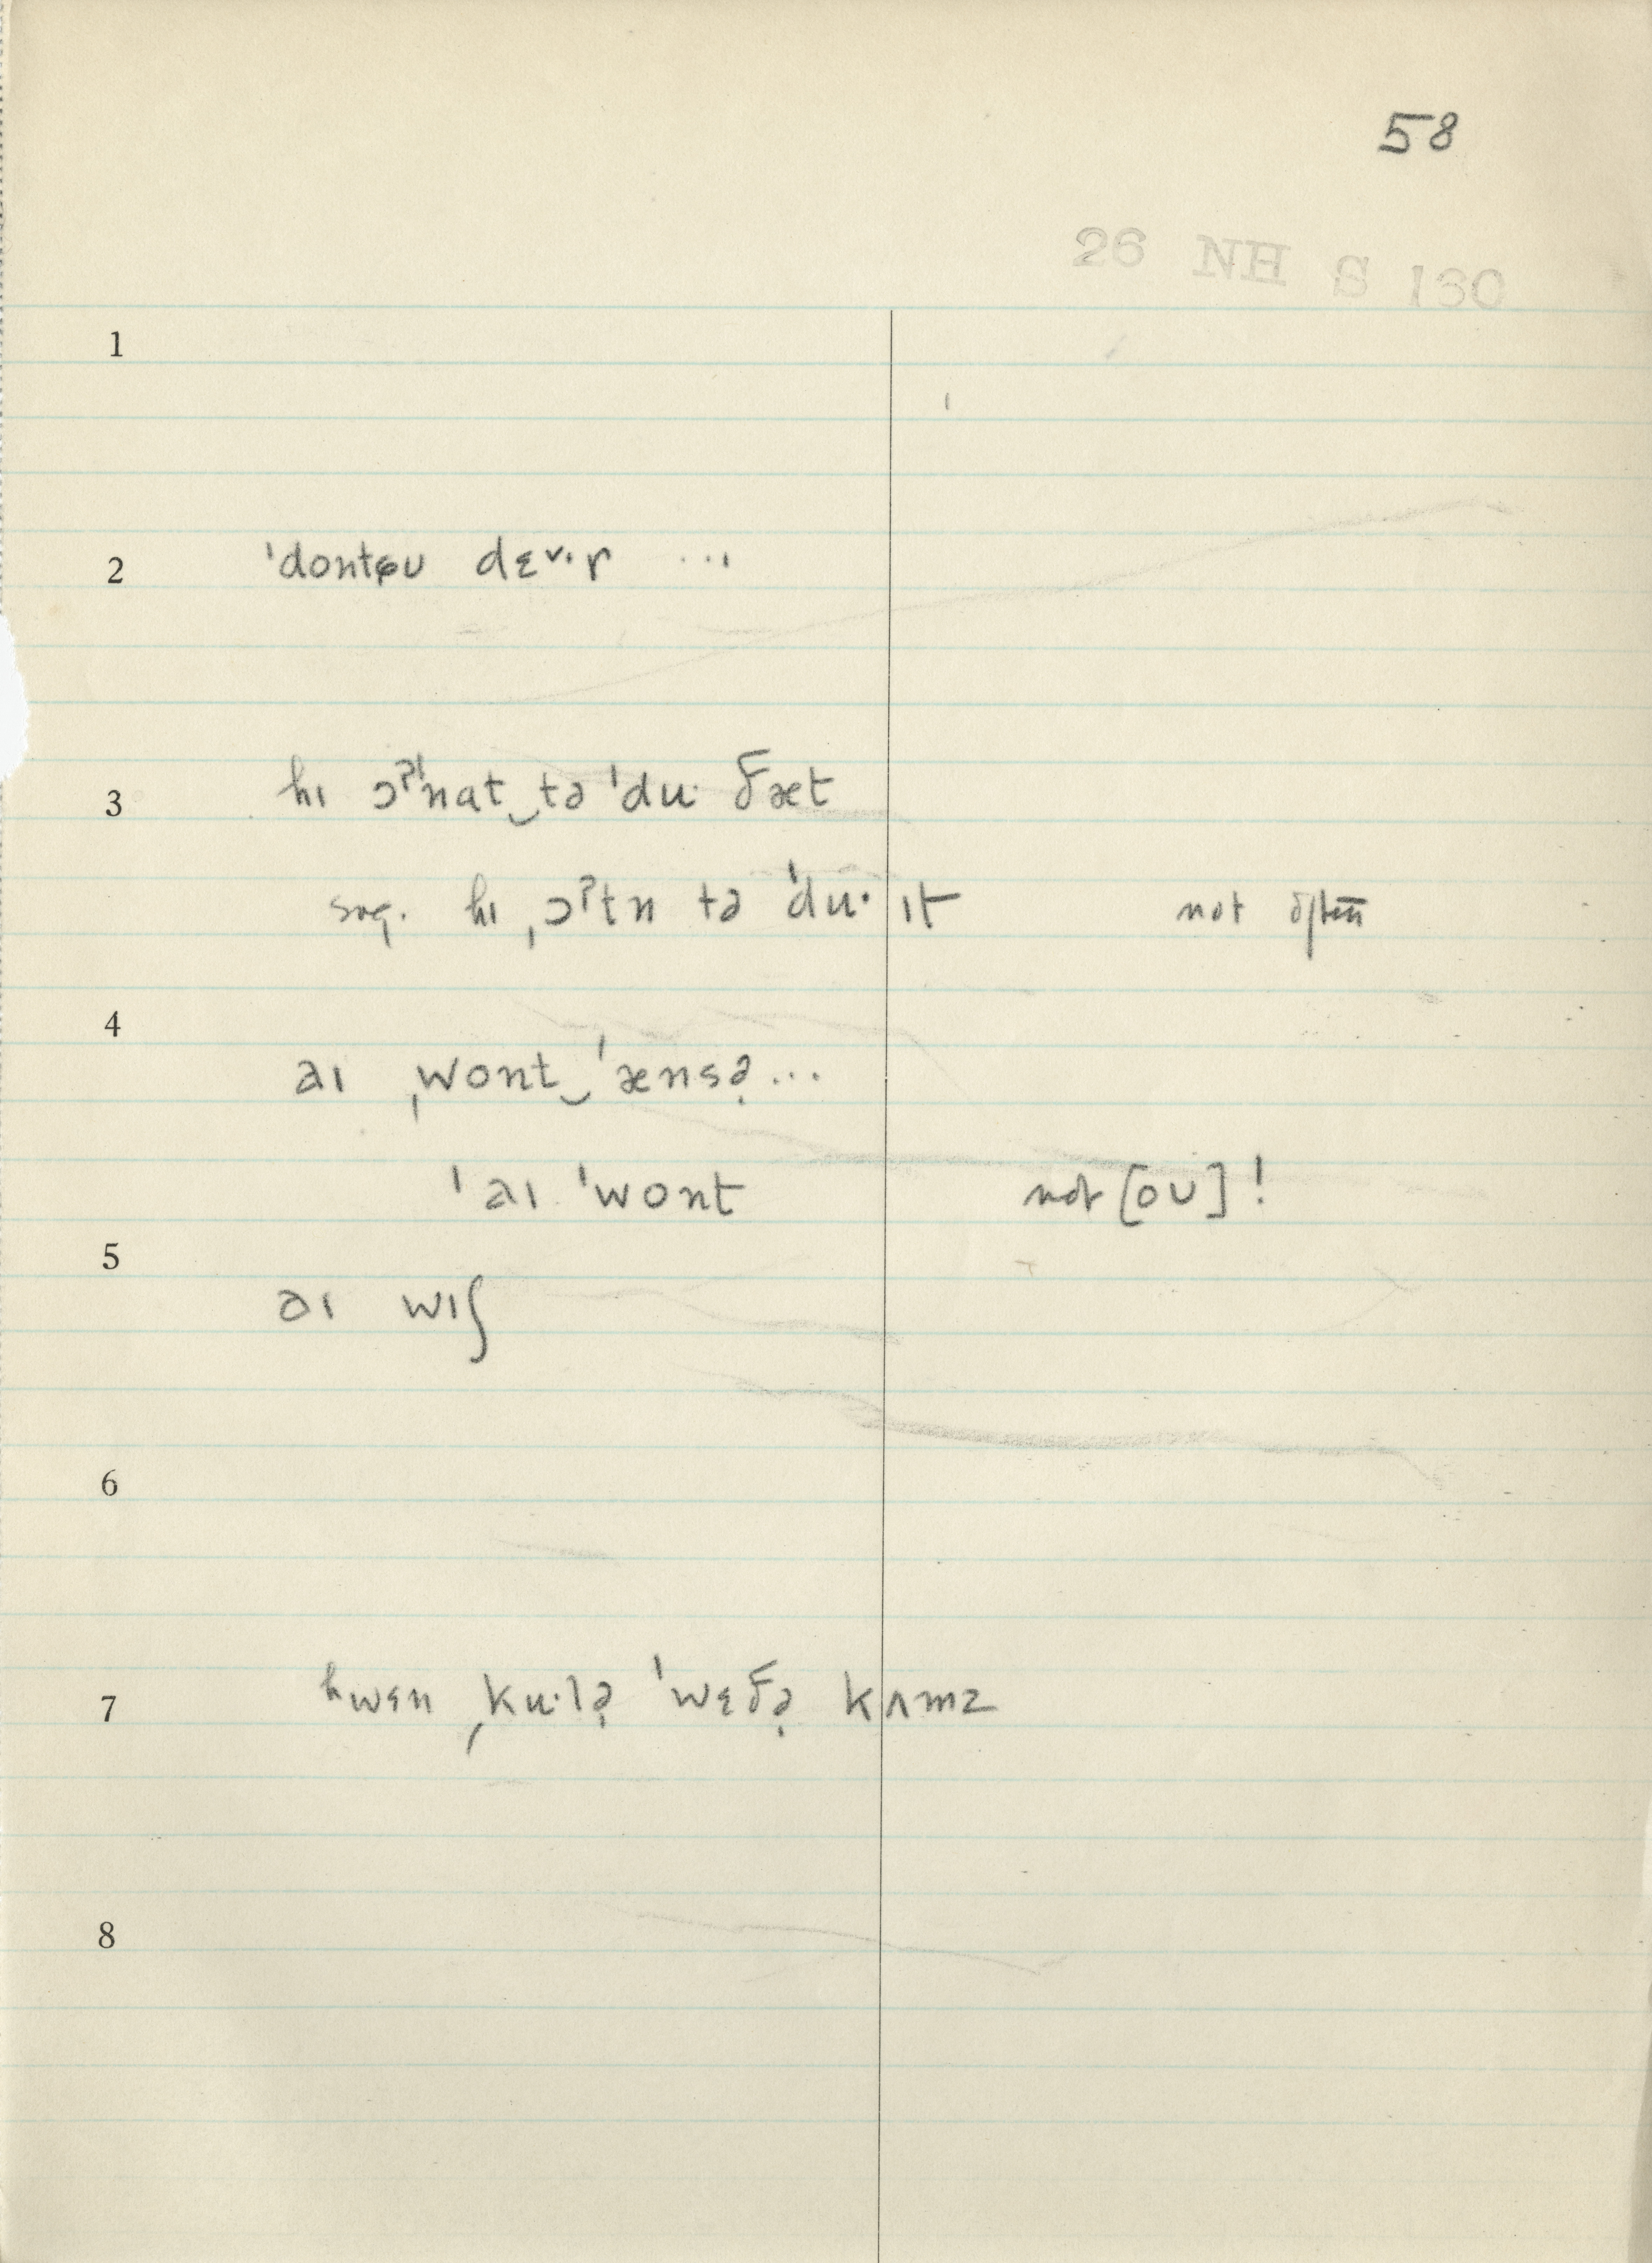 58
26 NH S 130
1
2 ˈdontɕʊ dɛ˅·r ...
3 hɪ ɔˀˈnat‿tə ˈdu· ðæt
sug. hɪ ˌɔˀtn tə ˈdu· ɪt not often
4
aɪ ˌwont‿ˈænsə̣...
ˈaɪ ˈwont not [oʊ]!
5
aɪ wɪʃ
6
7 hwɛn ˌku·lə̣ ˈwɛðə̣ kʌmz
8